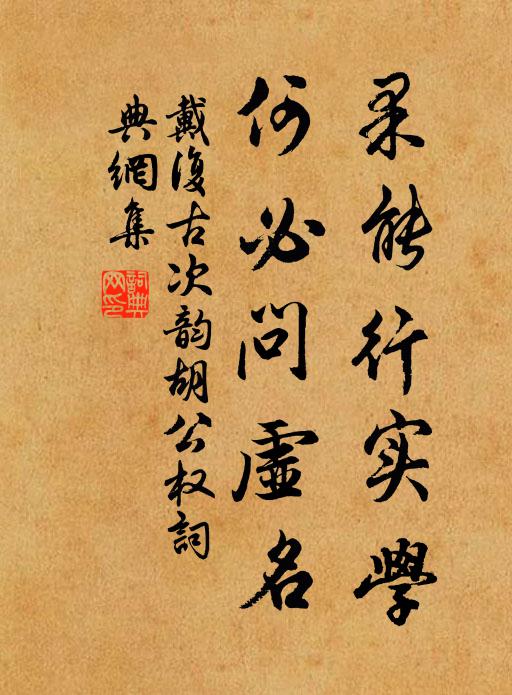 果能行实學
何必问虚名
戴復古次韵胡公权詞
典網集
詞典网印